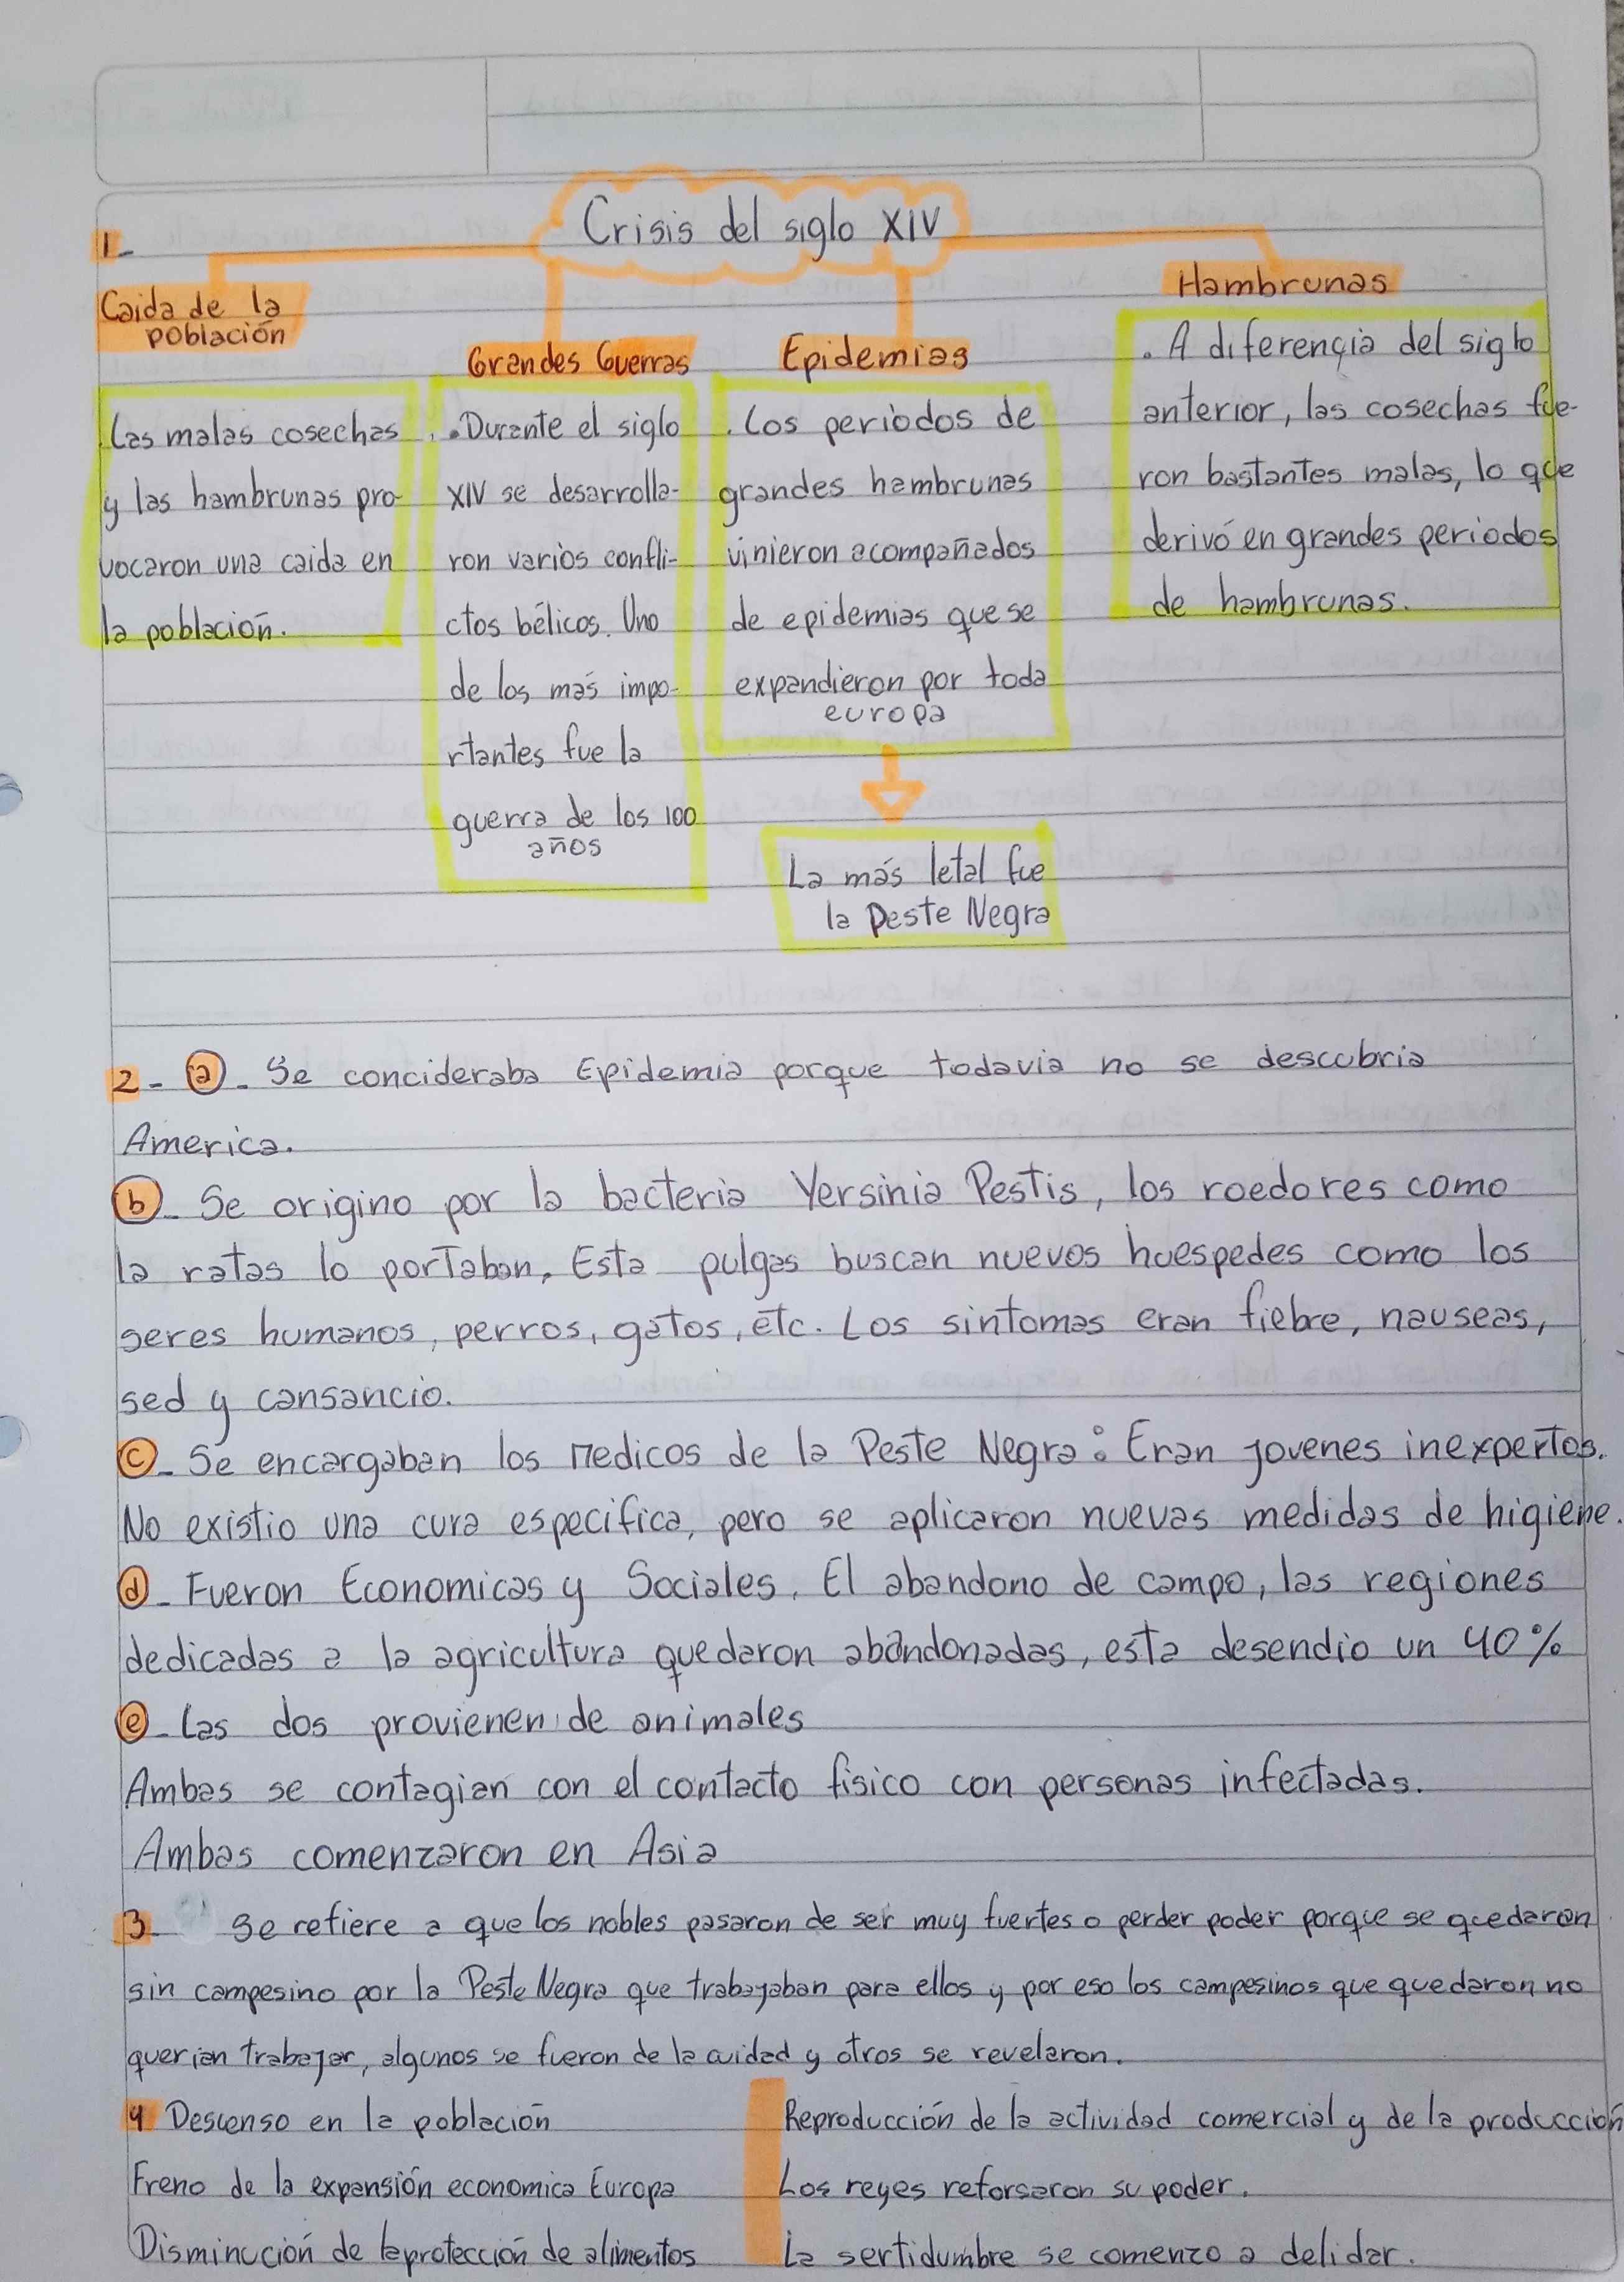 1-
Crisis del siglo XIV
Caida de la
población
Las malas cosechas
y las hambrunas pro-
vocaron una caida en
la población.
Grandes Guerras
. Durante el siglo
XIV se desarrolla-
ron varios confli-
ctos bélicos. Uno
de los más impo-
rtantes fue la
guerra de los 100
años
Epidemias
. Los periodos de
grandes hambrunas
vinieron acompañados
de epidemias que se
expandieron por toda
europa
La más letal fue
la Peste Negra
Hambrunas
. A diferencia del siglo
anterior, las cosechas fue-
ron bastantes malas, lo que
derivó en grandes periodos
de hambrunas.
2- a). Se concideraba Epidemia porque todavia no se descubria
America.
b)- Se origino por la bacteria Yersinia Pestis, los roedores como
la ratas lo portaban, Esta pulgas buscan nuevos huespedes como los
seres humanos, perros, gatos, etc. Los sintomas eran fiebre, nauseas,
sed y cansancio.
c)- Se encargaban los medicos de la Peste Negra: Eran jovenes inexpertos.
No existio una cura especifica, pero se aplicaron nuevas medidas de higiene.
d)- Fueron Economicas y Sociales, El abandono de campo, las regiones
dedicadas a la agricultura quedaron abandonadas, esta desendio un 40%
e)- Las dos provienen de animales
Ambas se contagian con el contacto fisico con personas infectadas.
Ambas comenzaron en Asia
3- Se refiere a que los nobles pasaron de ser muy fuertes a perder poder porque se quedaron
sin campesino por la Peste Negra que trabajaban para ellos y por eso los campesinos que quedaron no
querian trabajar, algunos se fueron de la cuidad y otros se revelaron.
4 Descenso en la población
Freno de la expansión economica Europa
Disminución de la protección de alimentos
Reproducción de la actividad comercial y de la producción
Los reyes reforsaron su poder.
La sertidumbre se comenzo a delidar.